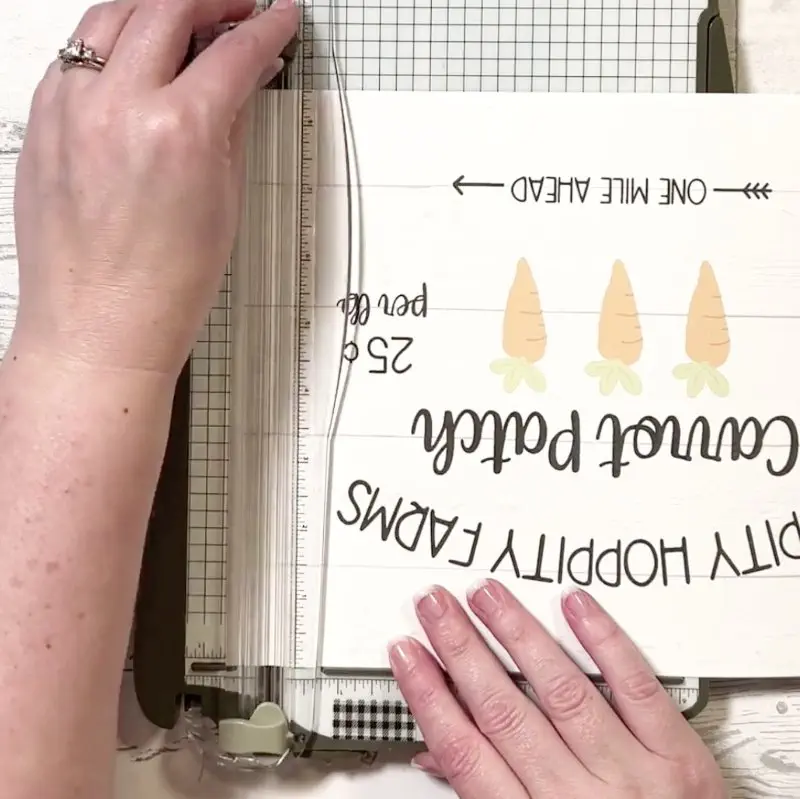 PITY HOPPITY FARMS
Carrot Patch
25¢
per
ONE MILE AHEAD